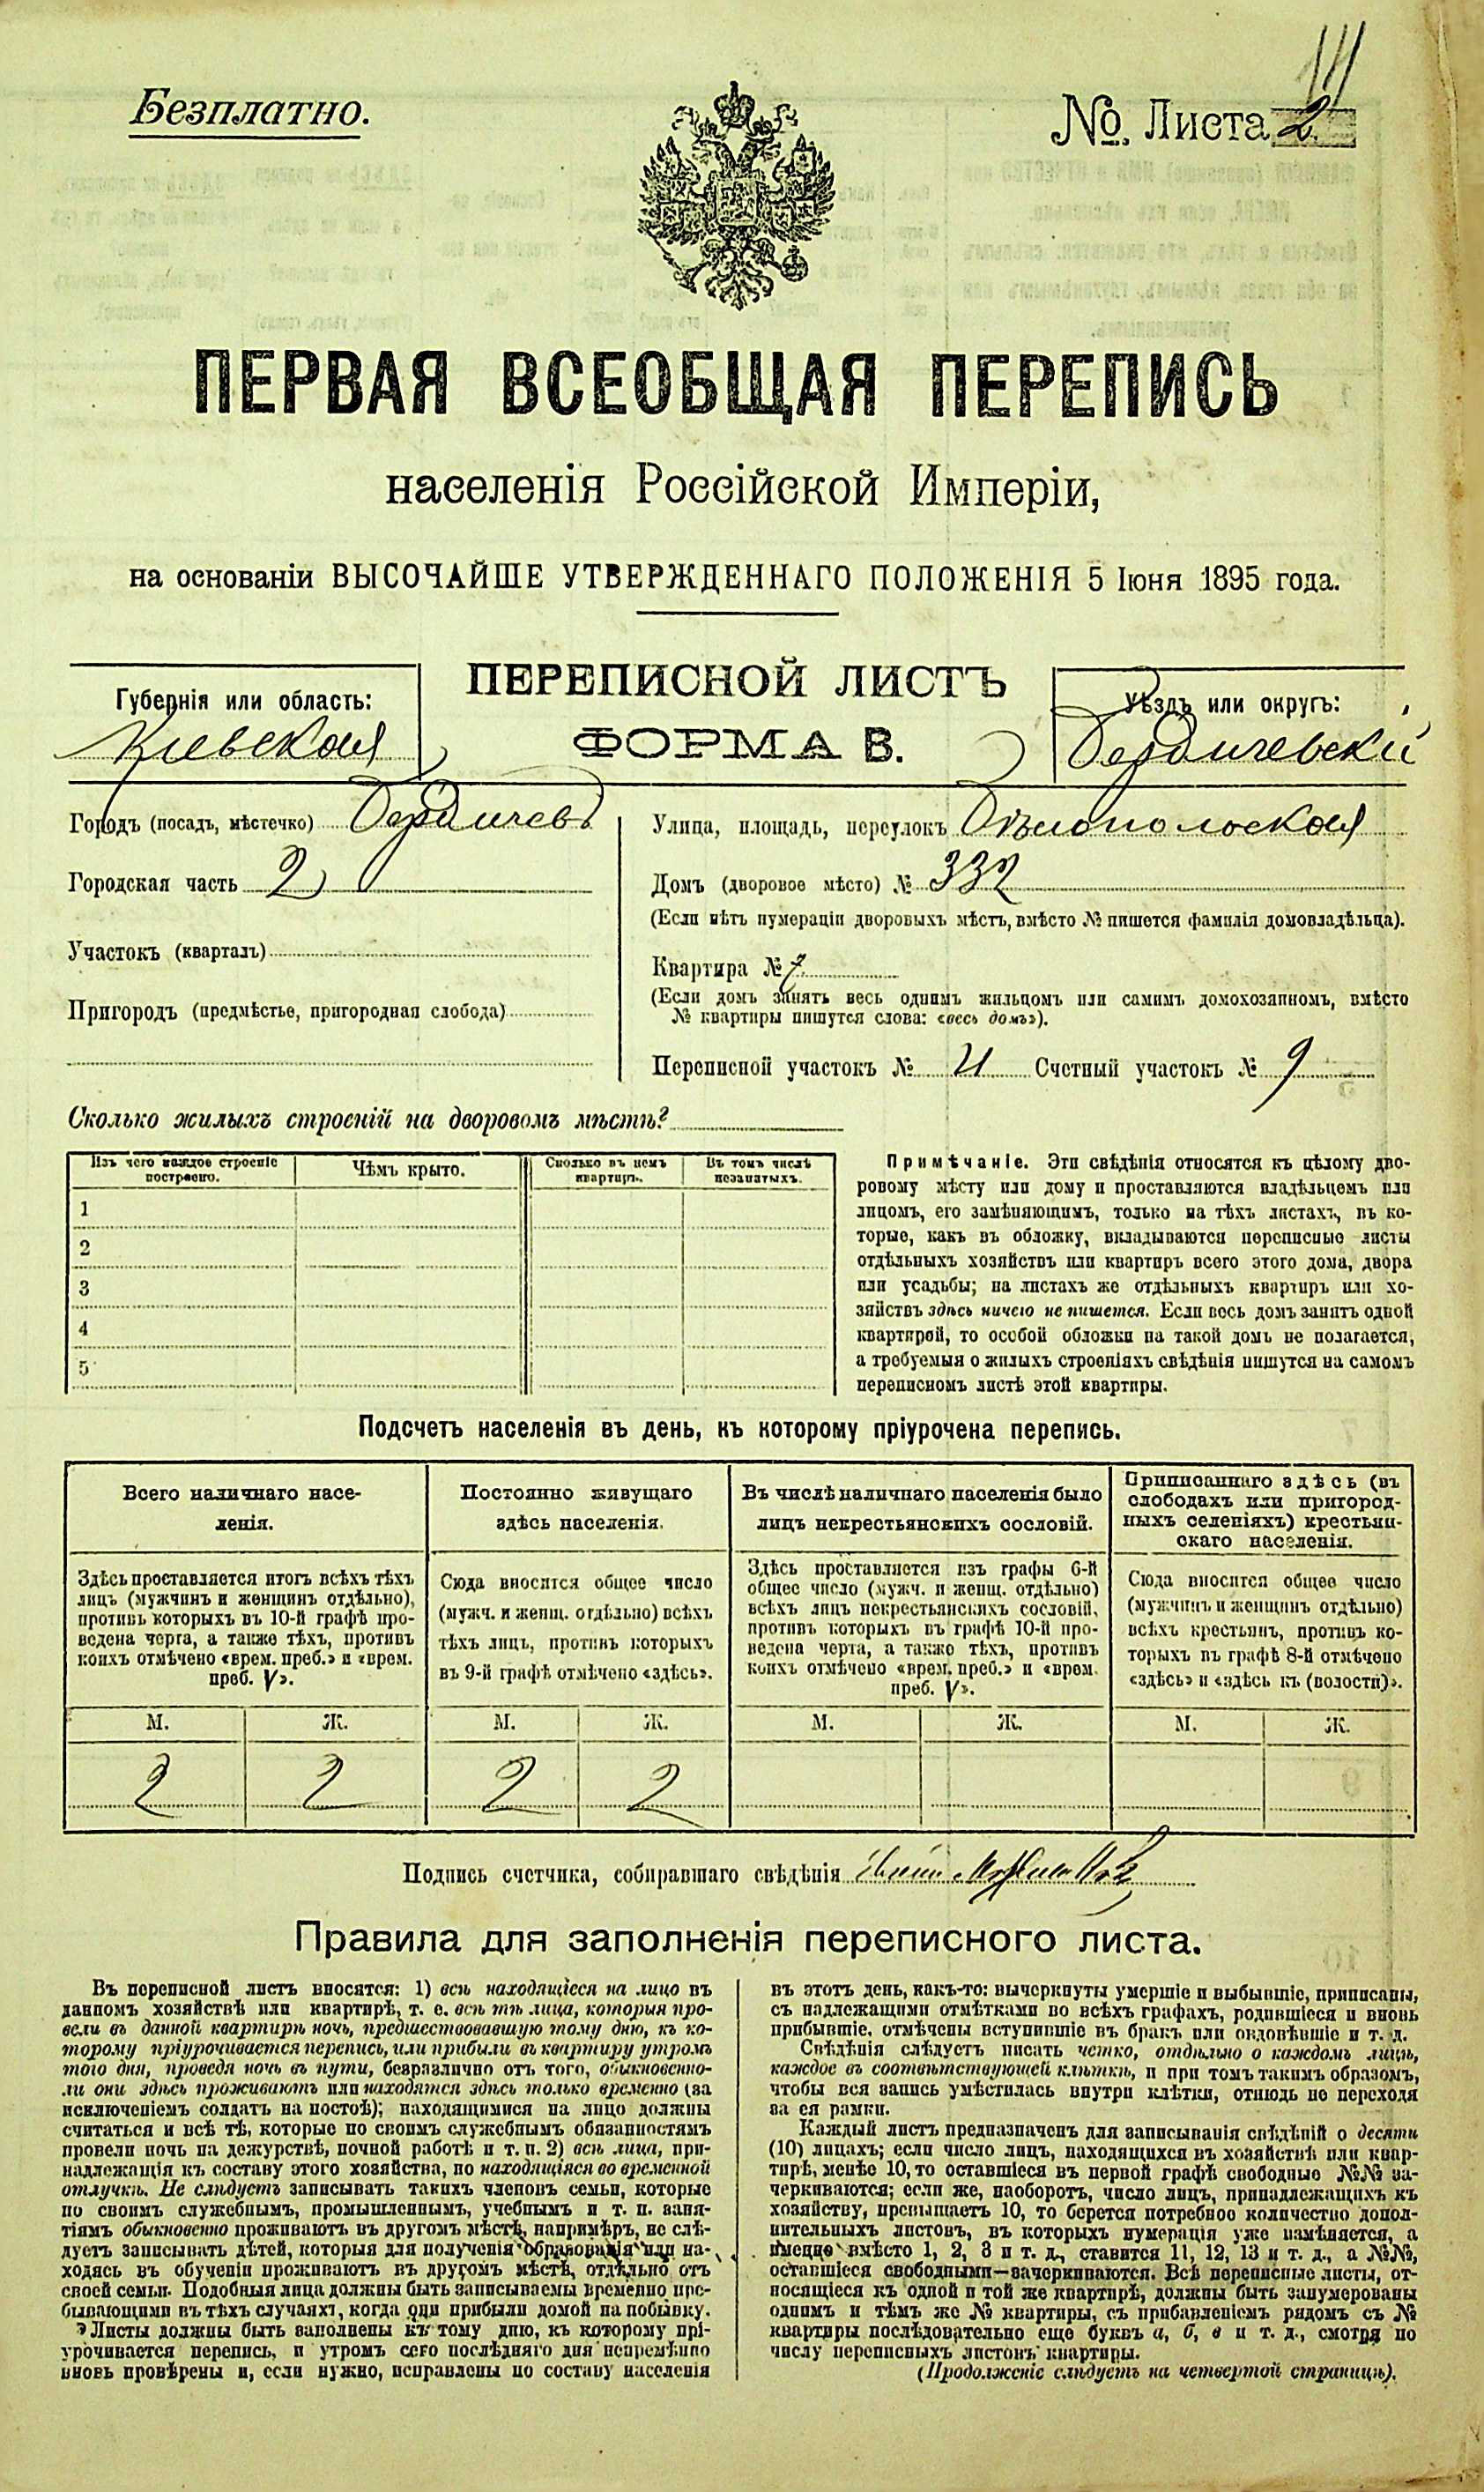 Безплатно.
№ Листа 2
ПЕРВАЯ ВСЕОБЩАЯ ПЕРЕПИСЬ
населенія Россійской Имперіи,
на основаніи ВЫСОЧАЙШЕ УТВЕРЖДЕННАГО ПОЛОЖЕНІЯ 5 Іюня 1895 года.
ПЕРЕПИСНОЙ ЛИСТЪ
ФОРМА В.
Губернія или область:
Кіевская
Уѣздъ или округъ:
Бердичевскій
Городъ (посадъ, мѣстечко) Бердичевъ
Городская часть 2
Участокъ (кварталъ)
Пригородъ (предмѣстье, пригородная слобода)
Улица, площадь, переулокъ Бѣлопольская
Домъ (дворовое мѣсто) № 332
(Если нѣтъ нумераціи дворовыхъ мѣстъ, вмѣсто № пишется фамилія домовладѣльца).
Квартира № 7
(Если домъ занятъ весь однимъ жильцомъ или самимъ домохозяиномъ, вмѣсто
№ квартиры пишутся слова: «весь домъ»).
Переписной участокъ № Счетный участокъ № 9
Сколько жилыхъ строеній на дворовомъ мѣстѣ?
Изъ чего каждое строеніе построено.
Чѣмъ крыто.
Сколько въ немъ квартиръ.
Въ томъ числѣ незанятыхъ.
1
2
3
4
5
Примѣчаніе. Эти свѣдѣнія относятся къ цѣлому дво-
ровому мѣсту или дому и проставляются владѣльцемъ или
лицомъ, его замѣняющимъ, только на тѣхъ листахъ, въ ко-
торые, какъ въ обложку, вкладываются переписные листы
отдѣльныхъ хозяйствъ или квартиръ всего этого дома, двора
или усадьбы; на листахъ же отдѣльныхъ квартиръ или хо-
зяйствъ здѣсь ничего не пишется. Если весь домъ занятъ одной
квартирой, то особой обложки на такой домъ не полагается,
а требуемыя о жилыхъ строеніяхъ свѣдѣнія пишутся на самомъ
переписномъ листѣ этой квартиры.
Подсчетъ населенія въ день, къ которому пріурочена перепись.
Всего наличнаго насе-
ленія.
Здѣсь проставляется итогъ всѣхъ тѣхъ
лицъ (мужчинъ и женщинъ отдѣльно),
противъ которыхъ въ 10-й графѣ про-
ведена черта, а также тѣхъ, противъ
коихъ отмѣчено «врем. преб.» и «врем.
преб. V».
Постоянно живущаго
здѣсь населенія.
Сюда вносится общее число
(мужч. и женщ. отдѣльно) всѣхъ
тѣхъ лицъ, противъ которыхъ
въ 9-й графѣ отмѣчено «здѣсь».
Въ числѣ наличнаго населенія было
лицъ некрестьянскихъ сословій.
Здѣсь проставляется изъ графы 6-й
общее число (мужч. и женщ. отдѣльно)
всѣхъ лицъ некрестьянскихъ сословій,
противъ которыхъ въ графѣ 10-й про-
ведена черта, а также тѣхъ, противъ
коихъ отмѣчено «врем. преб.» и «врем.
преб. V».
Приписаннаго здѣсь (въ
слободахъ или пригород-
ныхъ селеніяхъ) крестьян-
скаго населенія.
Сюда вносится общее число
(мужчинъ и женщинъ отдѣльно)
всѣхъ крестьянъ, противъ ко-
торыхъ въ графѣ 8-й отмѣчено
«здѣсь» и «здѣсь къ (волости)».
М. Ж. М. Ж. М. Ж. М. Ж.
2 2 2 2
Подпись счетчика, собиравшаго свѣдѣнія
Правила для заполненія переписного листа.
Въ переписной листъ вносятся: 1) всѣ находящіеся на лицо въ
данномъ хозяйствѣ или квартирѣ, т. е. всѣ тѣ лица, которыя про-
вели въ данной квартирѣ ночь, предшествовавшую тому дню, къ ко-
торому пріурочивается перепись, или прибыли въ квартиру утромъ
того дня, проведя ночь въ пути, безразлично отъ того, обыкновенно-
ли они здѣсь проживаютъ или находятся здѣсь только временно (за
исключеніемъ солдатъ на постоѣ); находящимися на лицо должны
считаться и всѣ тѣ, которые по своимъ служебнымъ обязанностямъ
провели ночь на дежурствѣ, ночной работѣ и т. п. 2) всѣ лица, при-
надлежащія къ составу этого хозяйства, но находящіяся во временной
отлучкѣ. Не слѣдуетъ записывать такихъ членовъ семьи, которые
по своимъ служебнымъ, промышленнымъ, учебнымъ и т. п. заня-
тіямъ обыкновенно проживаютъ въ другомъ мѣстѣ, напримѣръ, не слѣ-
дуетъ записывать дѣтей, которыя для полученія образованія или на-
ходясь въ обученіи проживаютъ въ другомъ мѣстѣ, отдѣльно отъ
своей семьи. Подобныя лица должны быть записываемы временно пре-
бывающими въ тѣхъ случаяхъ, когда они прибыли домой на побывку.
Листы должны быть заполнены къ тому дню, къ которому прі-
урочивается перепись, и утромъ сего послѣдняго дня непремѣнно
вновь провѣрены и, если нужно, исправлены по составу населенія
въ этотъ день, какъ-то: вычеркнуты умершіе и выбывшіе, приписаны,
съ надлежащими отмѣтками во всѣхъ графахъ, родившіеся и вновь
прибывшіе, отмѣчены вступившіе въ бракъ или овдовѣвшіе и т. д.
Свѣдѣнія слѣдуетъ писать четко, отдѣльно о каждомъ лицѣ,
каждое въ соотвѣтствующей клѣткѣ, и при томъ такимъ образомъ,
чтобы вся запись умѣстилась внутри клѣтки, отнюдь не переходя
за ея рамки.
Каждый листъ предназначенъ для записыванія свѣдѣній о десяти
(10) лицахъ; если число лицъ, находящихся въ хозяйствѣ или квар-
тирѣ, менѣе 10, то оставшіеся въ первой графѣ свободные №№ за-
черкиваются; если же, наоборотъ, число лицъ, принадлежащихъ къ
хозяйству, превышаетъ 10, то берется потребное количество допол-
нительныхъ листовъ, въ которыхъ нумерація уже измѣняется, а
именно вмѣсто 1, 2, 3 и т. д., ставится 11, 12, 13 и т. д., а №№,
оставшіеся свободными—зачеркиваются. Всѣ переписные листы, от-
носящіеся къ одной и той же квартирѣ, должны быть занумерованы
однимъ и тѣмъ же № квартиры, съ прибавленіемъ рядомъ съ №
квартиры послѣдовательно еще буквъ а, б, в и т. д., смотря по
числу переписныхъ листовъ квартиры.
(Продолженіе слѣдуетъ на четвертой страницѣ).